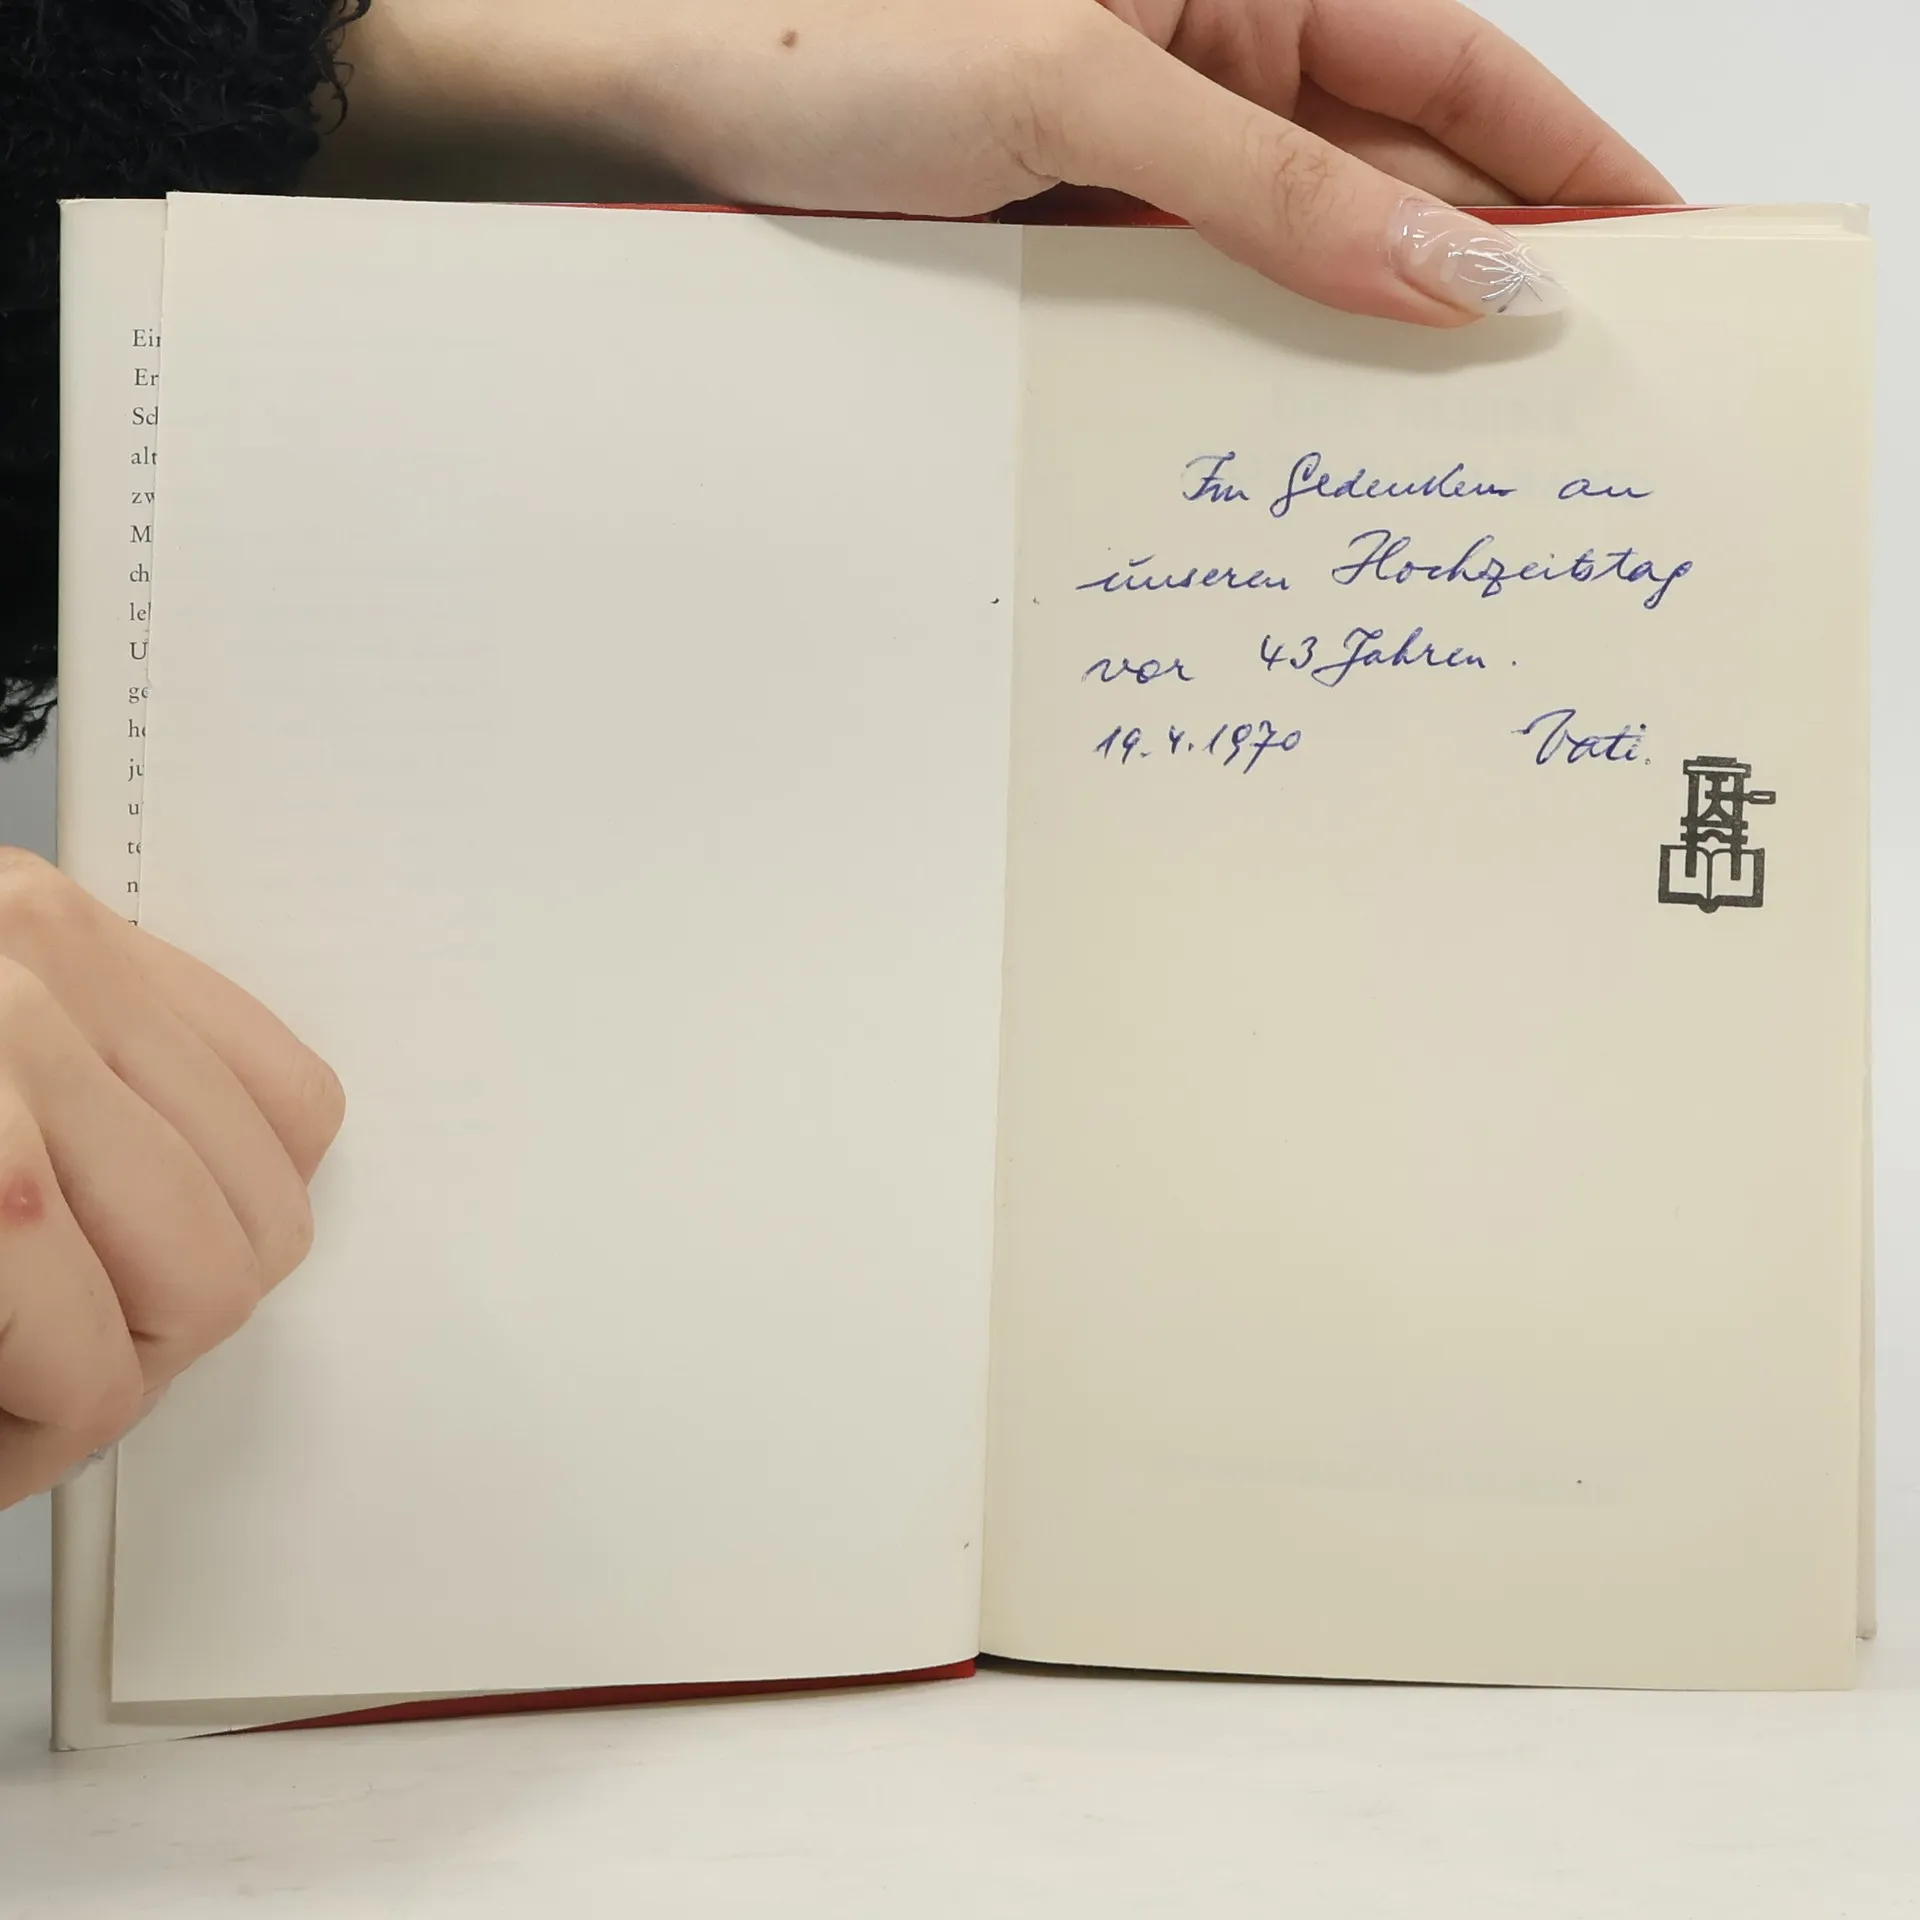 Ein
Er
Sch
alt
zw
M
ch
leb
U
ge
he
ju
u
te
n
Im Gedenken an
unseren Hochzeitstag
vor 43 Jahren.
19.4.1970 Vati.